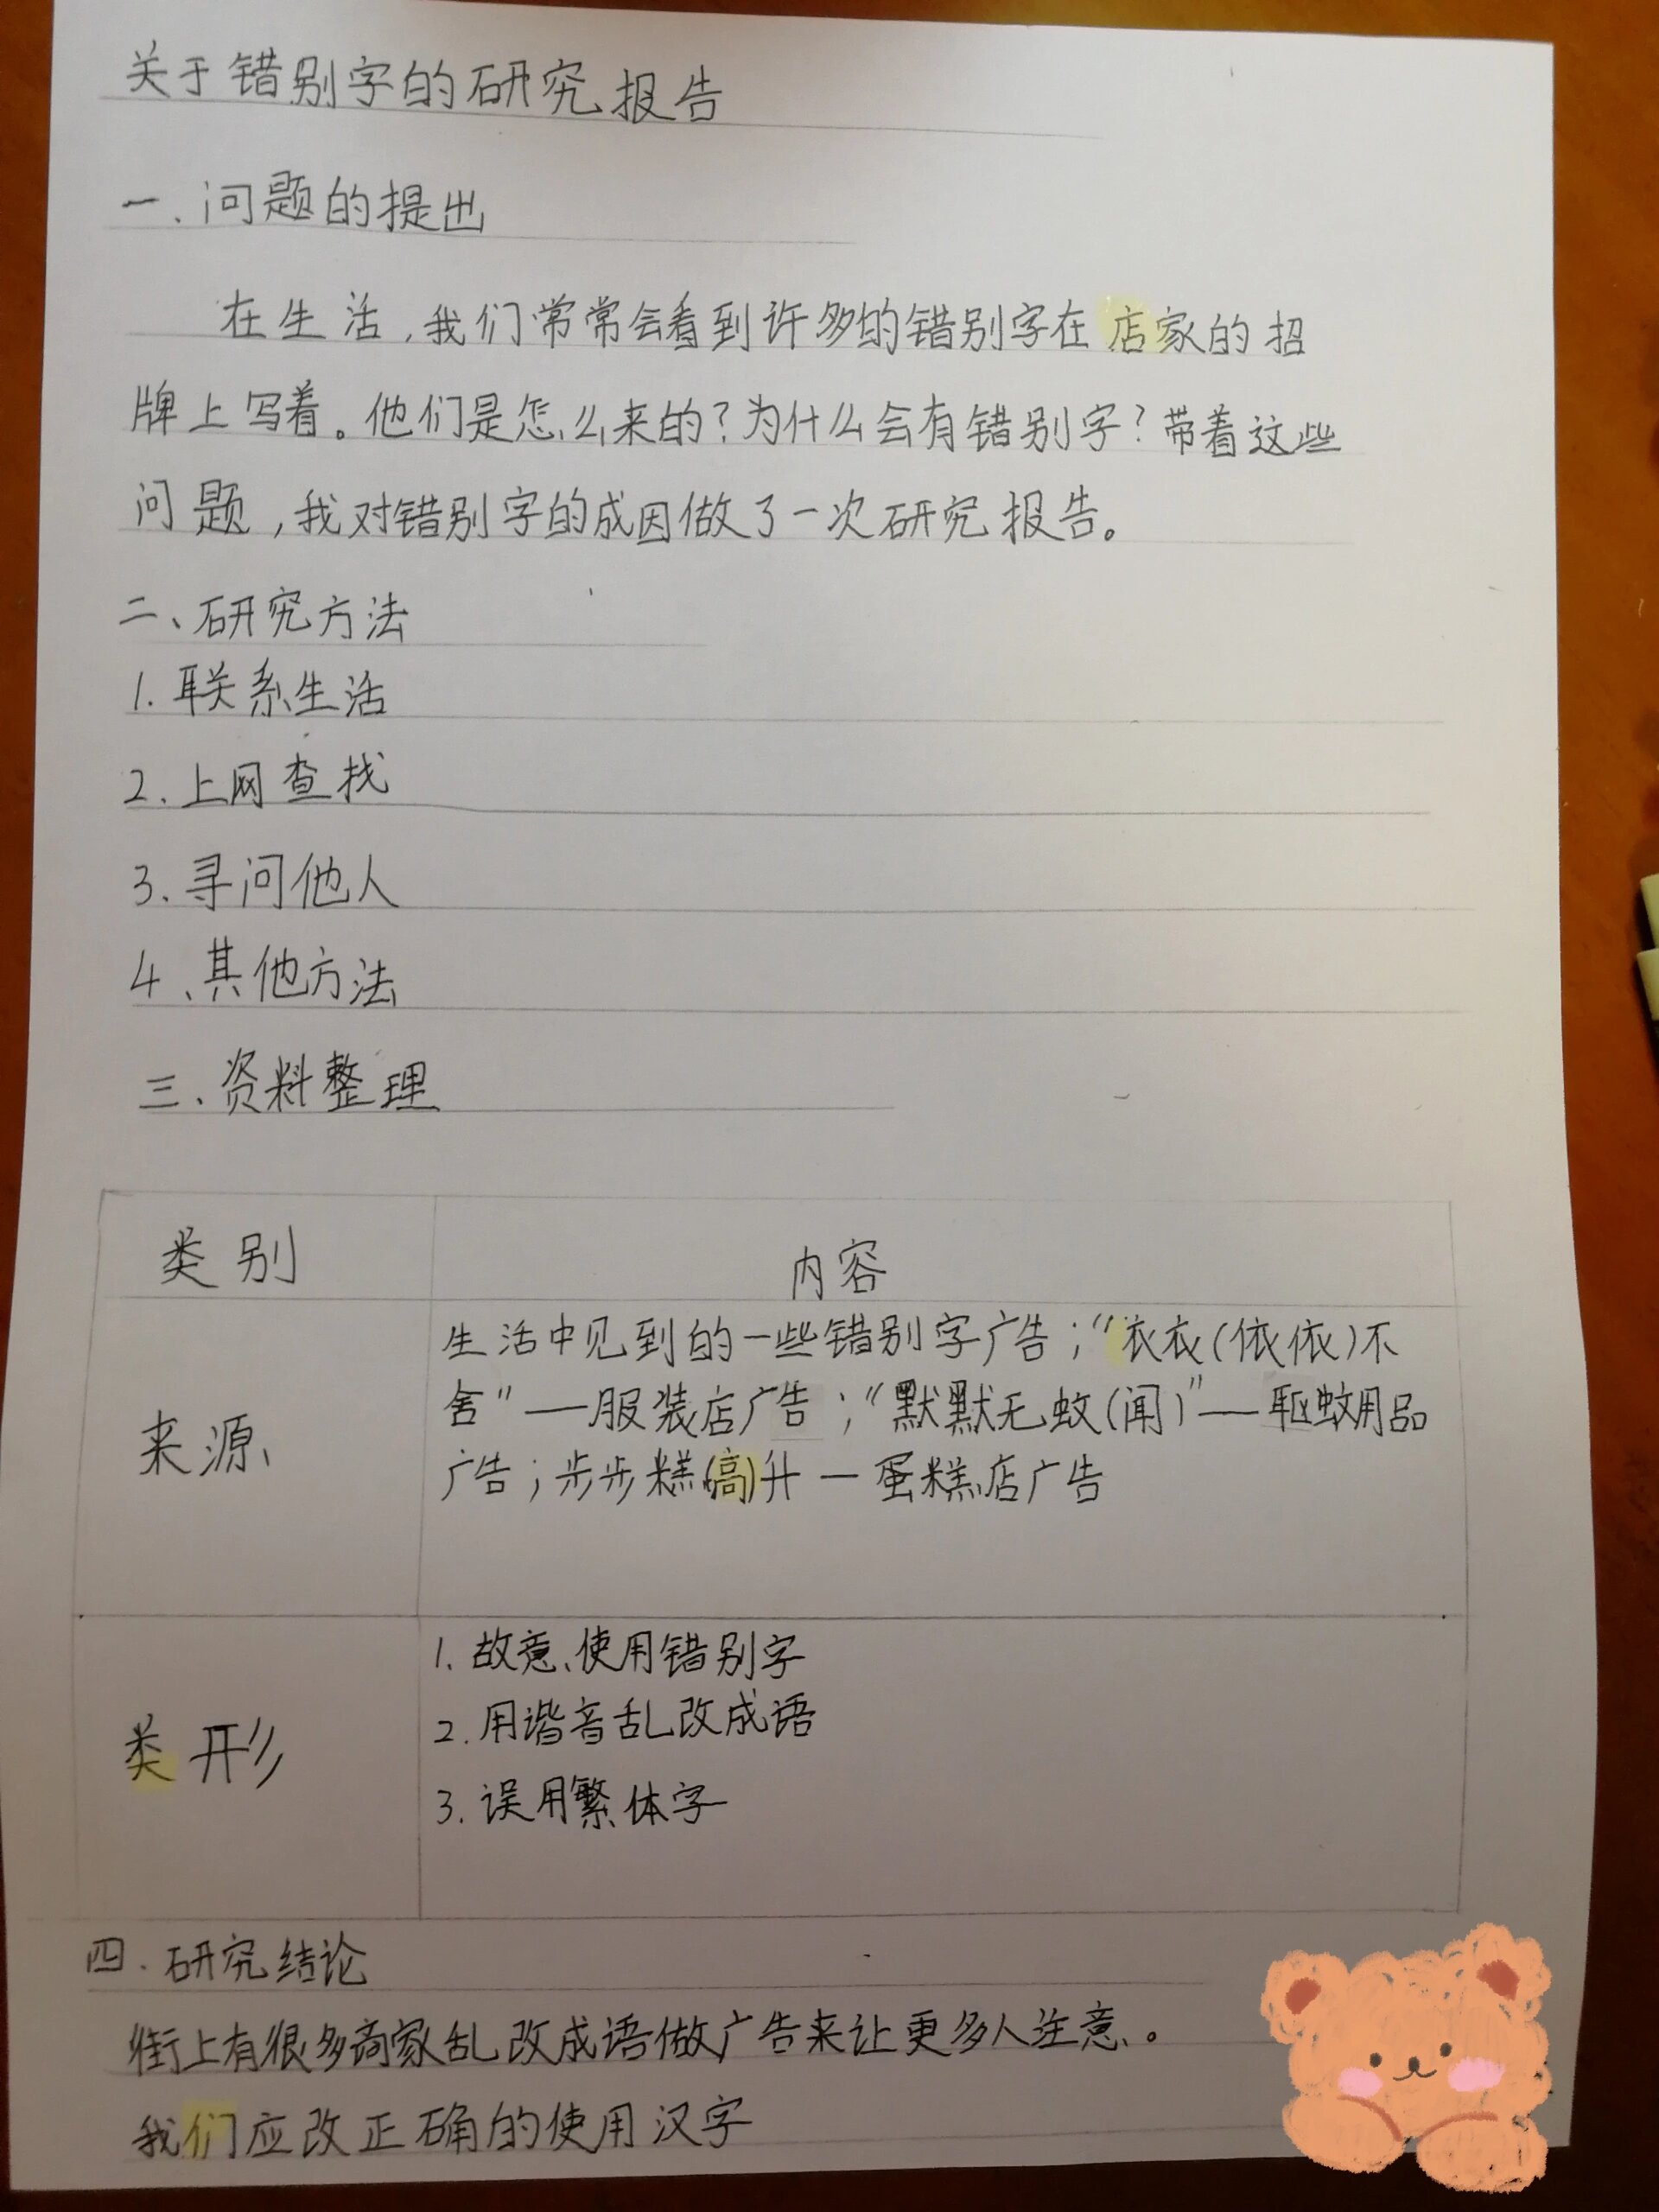 关于错别字的研究报告
一、问题的提出
在生活,我们常常会看到许多的错别字在店家的招
牌上写着。他们是怎么来的?为什么会有错别字?带着这些
问题,我对错别字的成因做了一次研究报告。
二、研究方法
1.联系生活
2.上网查找
3.寻问他人
4、其他方法
三、资料整理
类别
内容
来源
生活中见到的一些错别字广告;“衣衣(依依)不
舍”——服装店广告;“默默无蚊(闻)”——驱蚊用品
广告;步步糕(高)升—蛋糕店广告
类形
1.故意使用错别字
2.用谐音乱改成语
3.误用繁体字
四.研究结论
街上有很多商家乱改成语做广告来让更多人注意。
我们应改正确的使用汉字